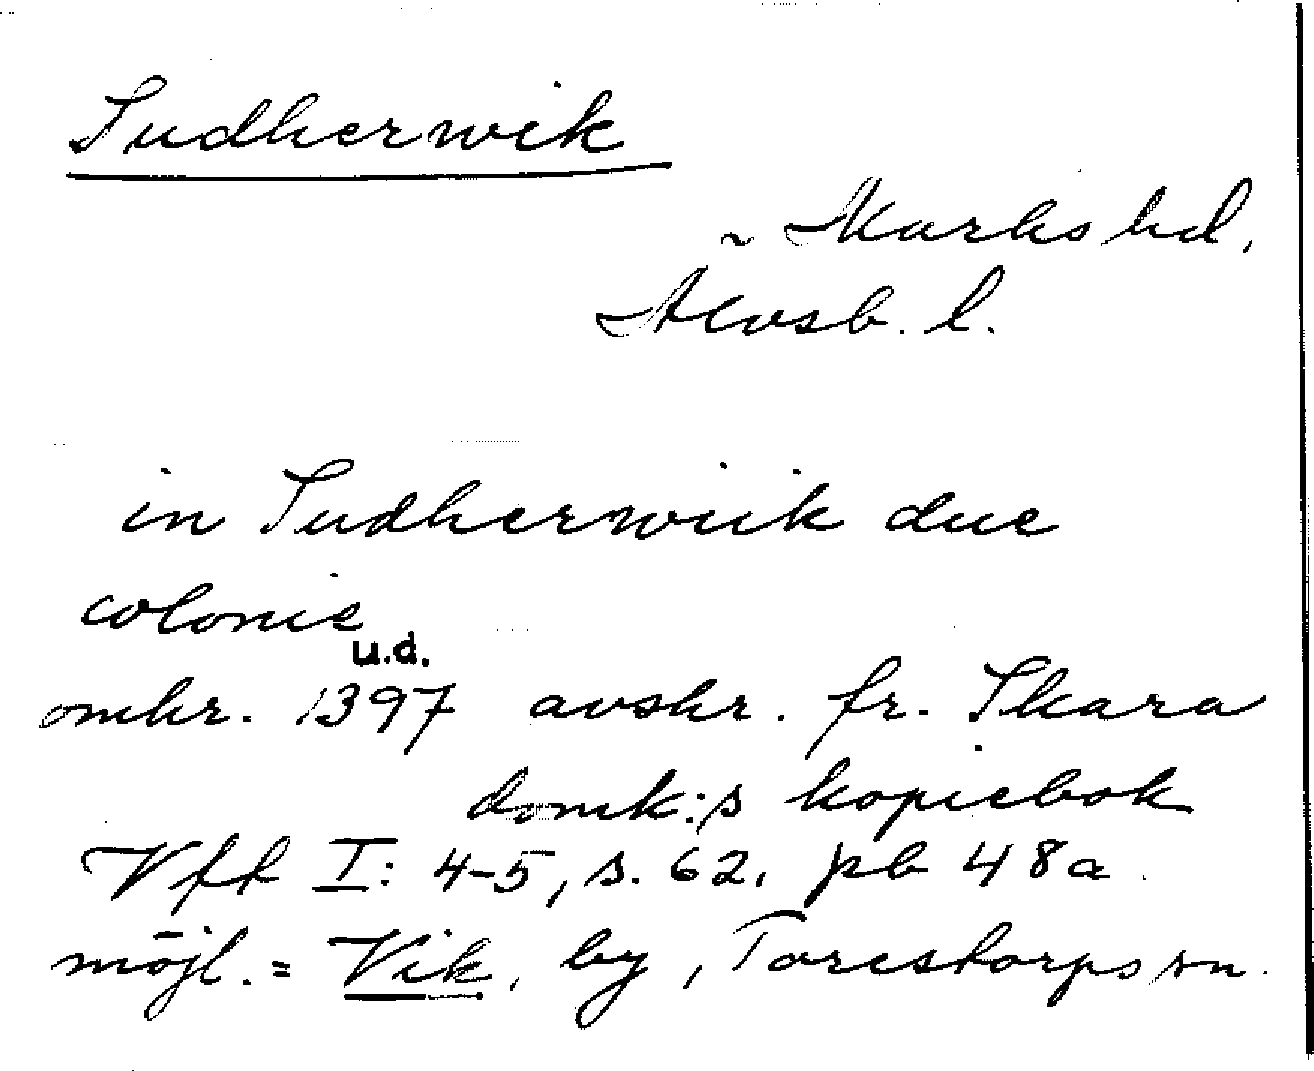 Sudherwik
~ Marks hd,
Älvsb. l.
in Sudherwiik due
colonie
u.d.
omkr. 1397 avskr. fr. Skara
domk:s kopiebok
Vff I: 4-5, s. 62, pb 48a.
möjl. = Vik, by, Torestorps sn.